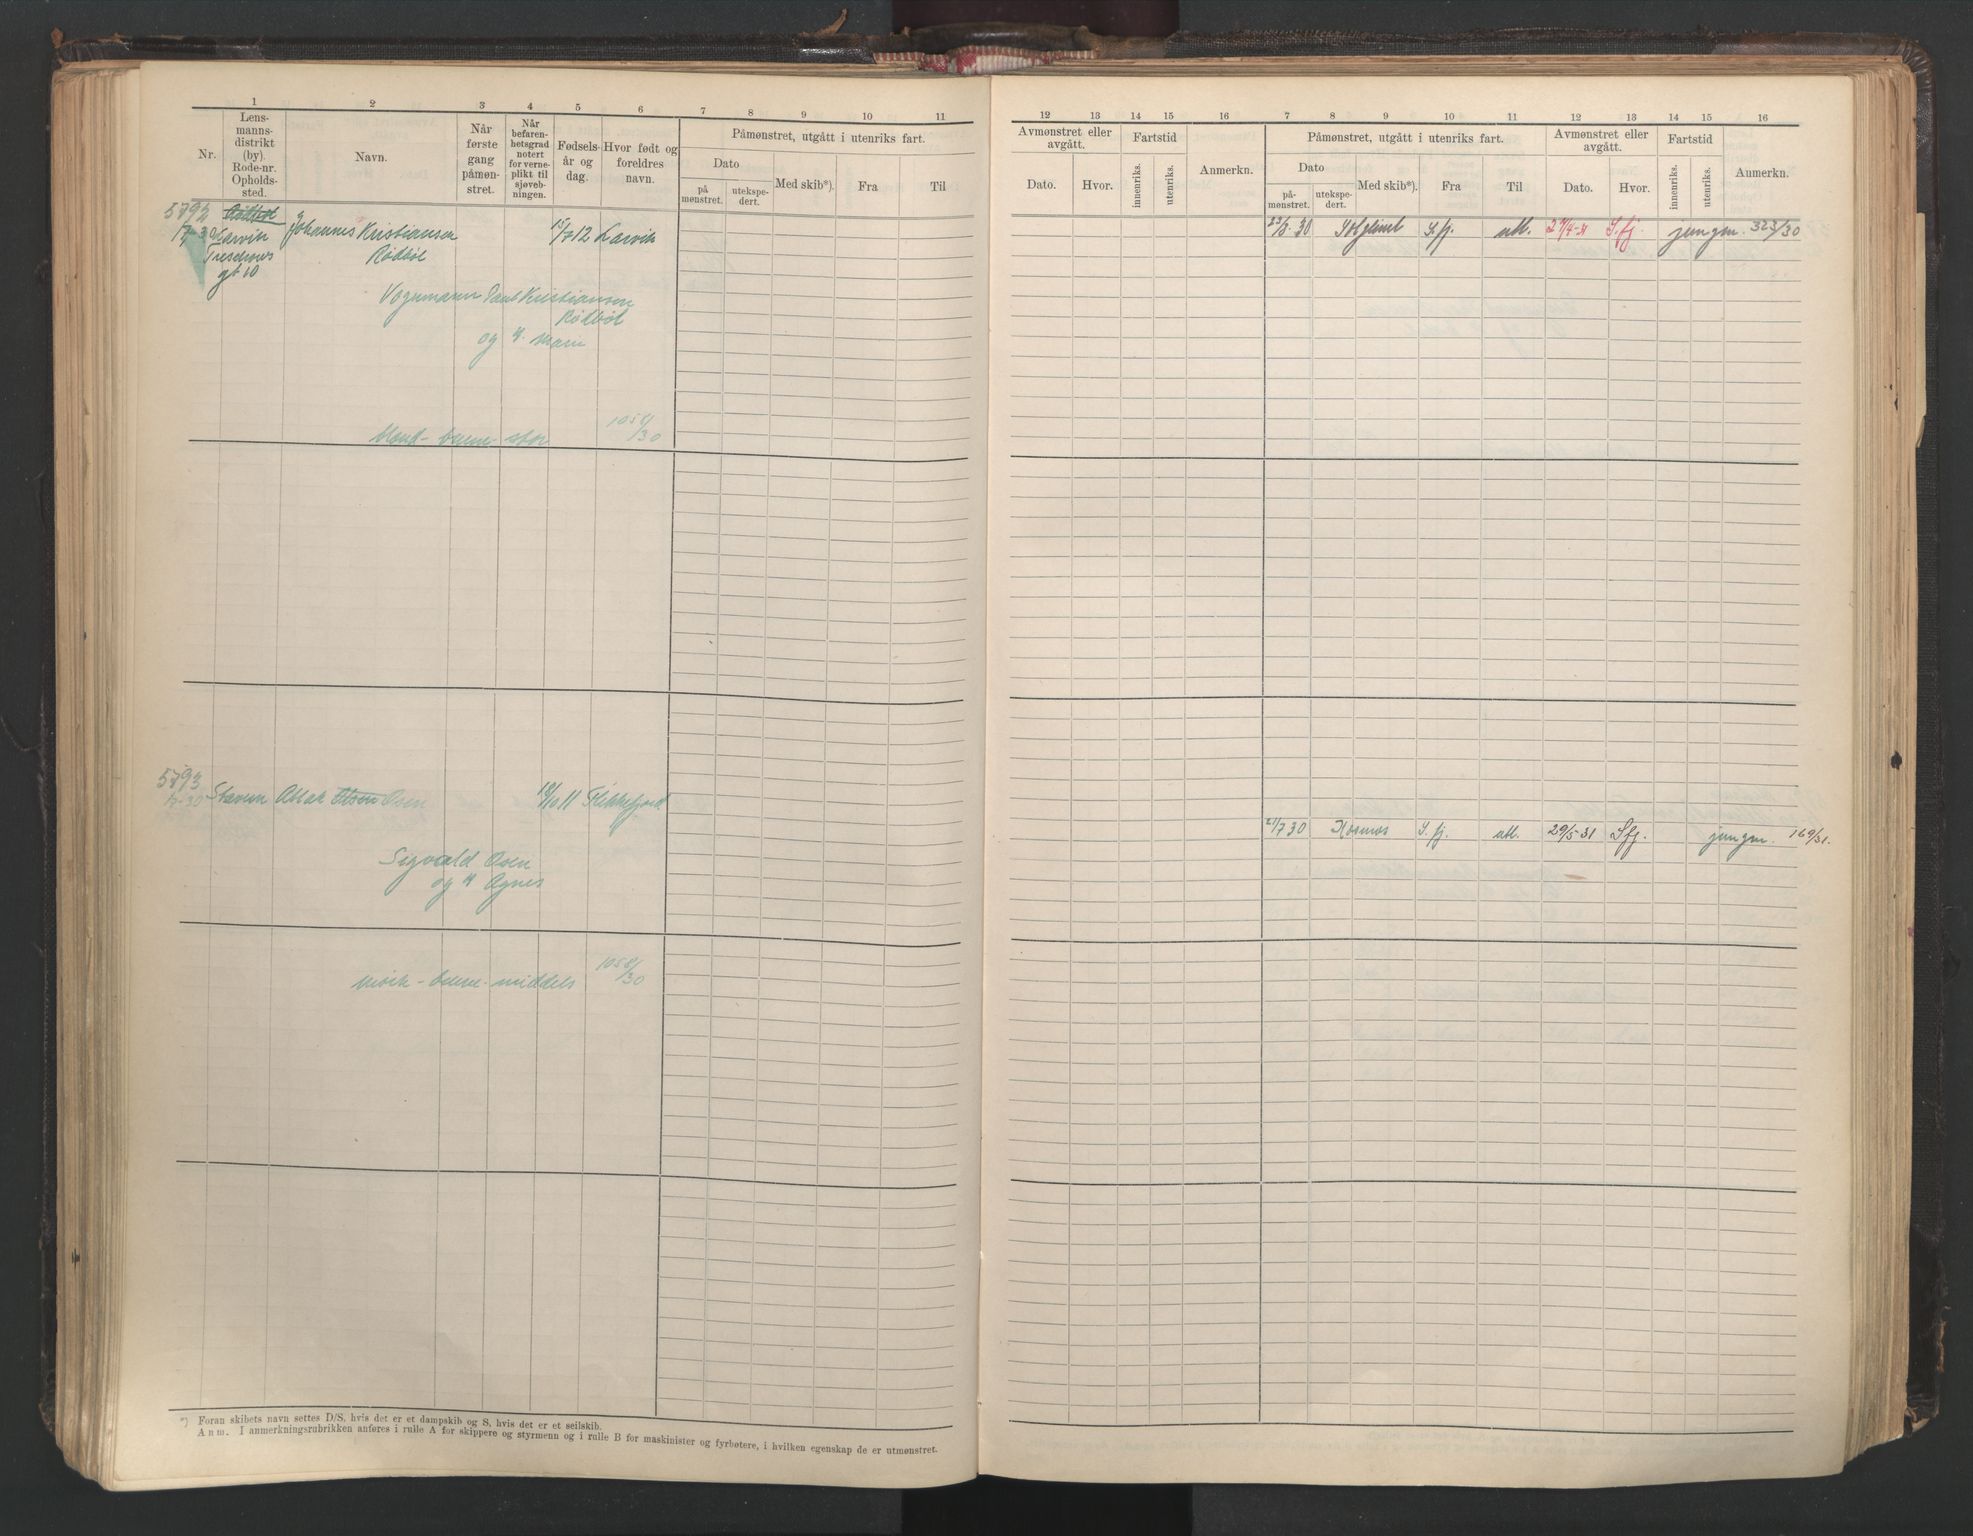 1 2 3 4 5 6 7 8 9 10 11
Nr.
Lens-
manns-
distrikt
(by).
Rode-nr.
Opholds-
sted.
Navn.
Når
første
gang
påmøn-
stret.
Når
befaren-
hetsgrad
notert
for verne-
plikt til
sjøveb-
ningen.
Fødsels-
år og
dag.
Hvor født og
foreldres
navn.
Påmønstret, utgått i utenriks fart.
Dato
på
mønstret.
utekspe-
dert.
Med skib*).
Fra
Til
5792 Rödböl
Larvik Johannes Kristiansen 15/7 12 Larvik
Treschows Rödböl
gt 10
Vognmann Paul Kristiansen
Rödböl
og h.
blond - brune - stor 1058/30
5793
17-30 Stavern Aslak Olsen Osen 18/10 11 Flekkefjord
Sigvald Osen
og h Agnes
mörk - brune - middels 1058/30
*) Foran skibets navn settes D/S, hvis det er et dampskib og S, hvis det er et seilskib.
Anm. I anmerkningsrubrikken anføres i rulle A for skippere og styrmenn og i rulle B for maskinister og fyrbøtere, i hvilken egenskap de er utmønstret.
12 13 14 15 16 7 8 9 10 11 12 13 14 15 16
Avmønstret eller
avgått.
Dato.
Hvor.
Fartstid
innenriks.
utenriks.
Anmerkn.
Påmønstret, utgått i utenriks fart.
Dato
på-
mønstret.
utekspe-
dert.
Med skib*).
Fra
Til
Avmønstret eller
avgått.
Dato.
Hvor.
Fartstid
innenriks.
utenriks.
Anmerkn.
23/8 30 Solglimt S.fj. utl. 27/4-31 S.fj. jungm. 323/30
21/7 30 Kosmos S.fj. utl. 29/5-31 Sfj. jungm. 169/31.